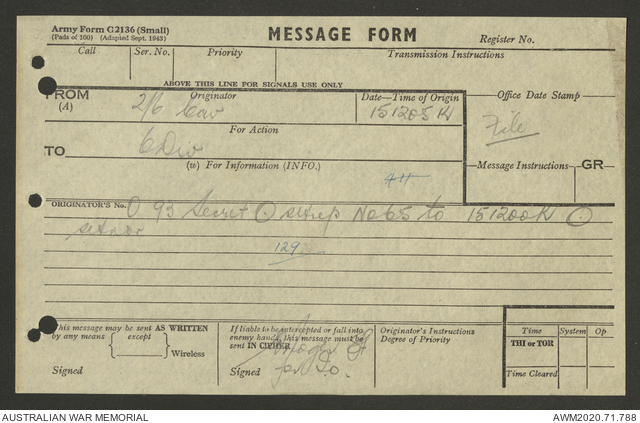 Army Form C2136 (Small)
(Pads of 100) (Adapted Sept. 1943)
MESSAGE FORM
Register No.
Call Ser. No. Priority Transmission Instructions
ABOVE THIS LINE FOR SIGNALS USE ONLY
FROM (A) Originator Date—Time of Origin Office Date Stamp
2/6 Cav 151205K
File
For Action
TO 6 Div
(w) For Information (INFO.) Message Instructions GR
ORIGINATOR'S No. O 93 Secret sitrep No 65 to 151200K
129
This message may be sent AS WRITTEN by any means except
Wireless
Signed
If liable to be intercepted or fall into enemy hands, this message must be sent IN CIPHER
Signed
Lt
for I.O.
Originator's Instructions
Degree of Priority
Time System Op
THI or TOR
Time Cleared
AUSTRALIAN WAR MEMORIAL AWM2020.71.788